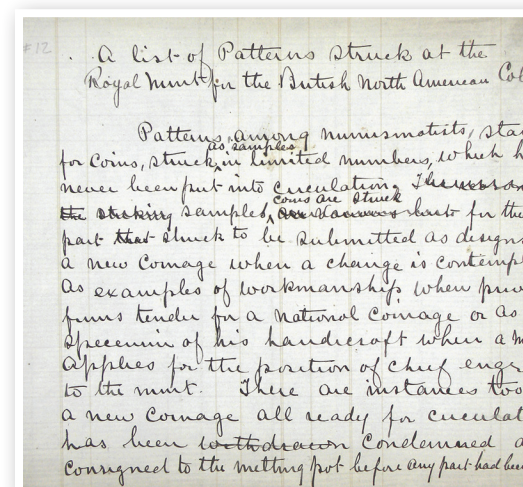 #12
A list of Patterns struck at the
Royal Mint for the British North American Col
Patterns, among numismatists, sta
as samples
for coins, struck in limited numbers, which h
never been put into circulation.
coins are struck
samples, for the
part that struck to be submitted as design
a new coinage when a change is contempl
as examples of workmanship when priv
firms tender for a national coinage or as
specemin of his handicraft when a m
applies for the position of chief engr
to the mint. There are instances too
a new coinage all ready for circulat
has been withdrawn condemned a
consigned to the melting pot before any part had been